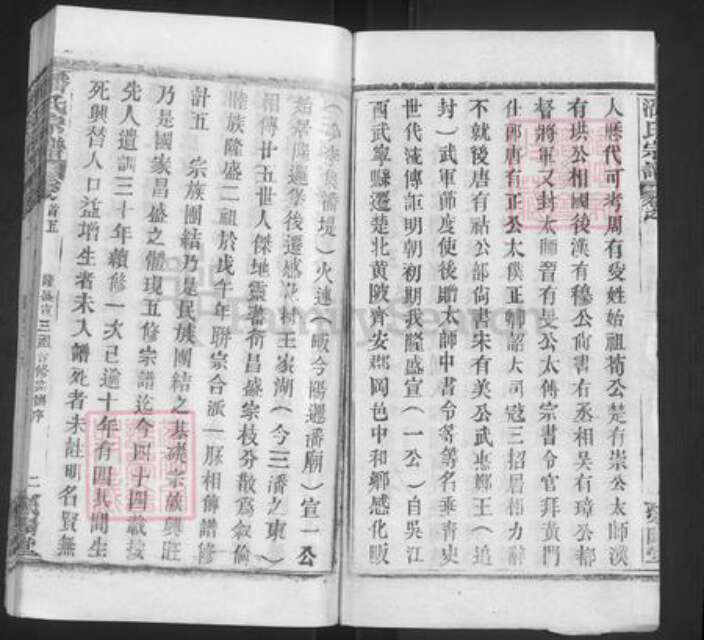 人歷代可考周有受姓始祖荀公楚有崇公太師漢
有拱公相國後漢有穆公尙書右丞相吳有璋公都
督將軍又封太師晉有旻公太傅宗書令官拜黃門
仕郎唐有正公太僕正卿詔大司寇三招居相力辭
不就後唐有祜公部尙書宋有美公武惠鄭王（追
封）武軍節度使後贈太師中書令等等名垂靑史
世代流傳詎明朝初期我隆盛宣（一公）自吳江
西武寧縣遷楚北黃陂齊安郡岡邑中和鄉感化畈
潘堤）火連畈今陽邏潘廟）宣一公
始居隆邏集後遷感化村王家湖（今三潘之東）
相傳廿五世人傑地靈蕃衍昌盛宗枝分散爲敘倫
睦族隆盛二祖於戊午年聯宗合派一脈相傳譜修
計五 宗族團結乃是民族團結之基礎宗族興旺
乃是國家昌盛之體現五修宗譜迄今四十四載按
先人遺訓三十年續修一次已逾十年有四其間生
死興替人口益增生者未入譜死者未註明名賢無
隆盛宣三祖合修宗譜序
二
潘氏宗譜 卷之首五
潘氏宗譜